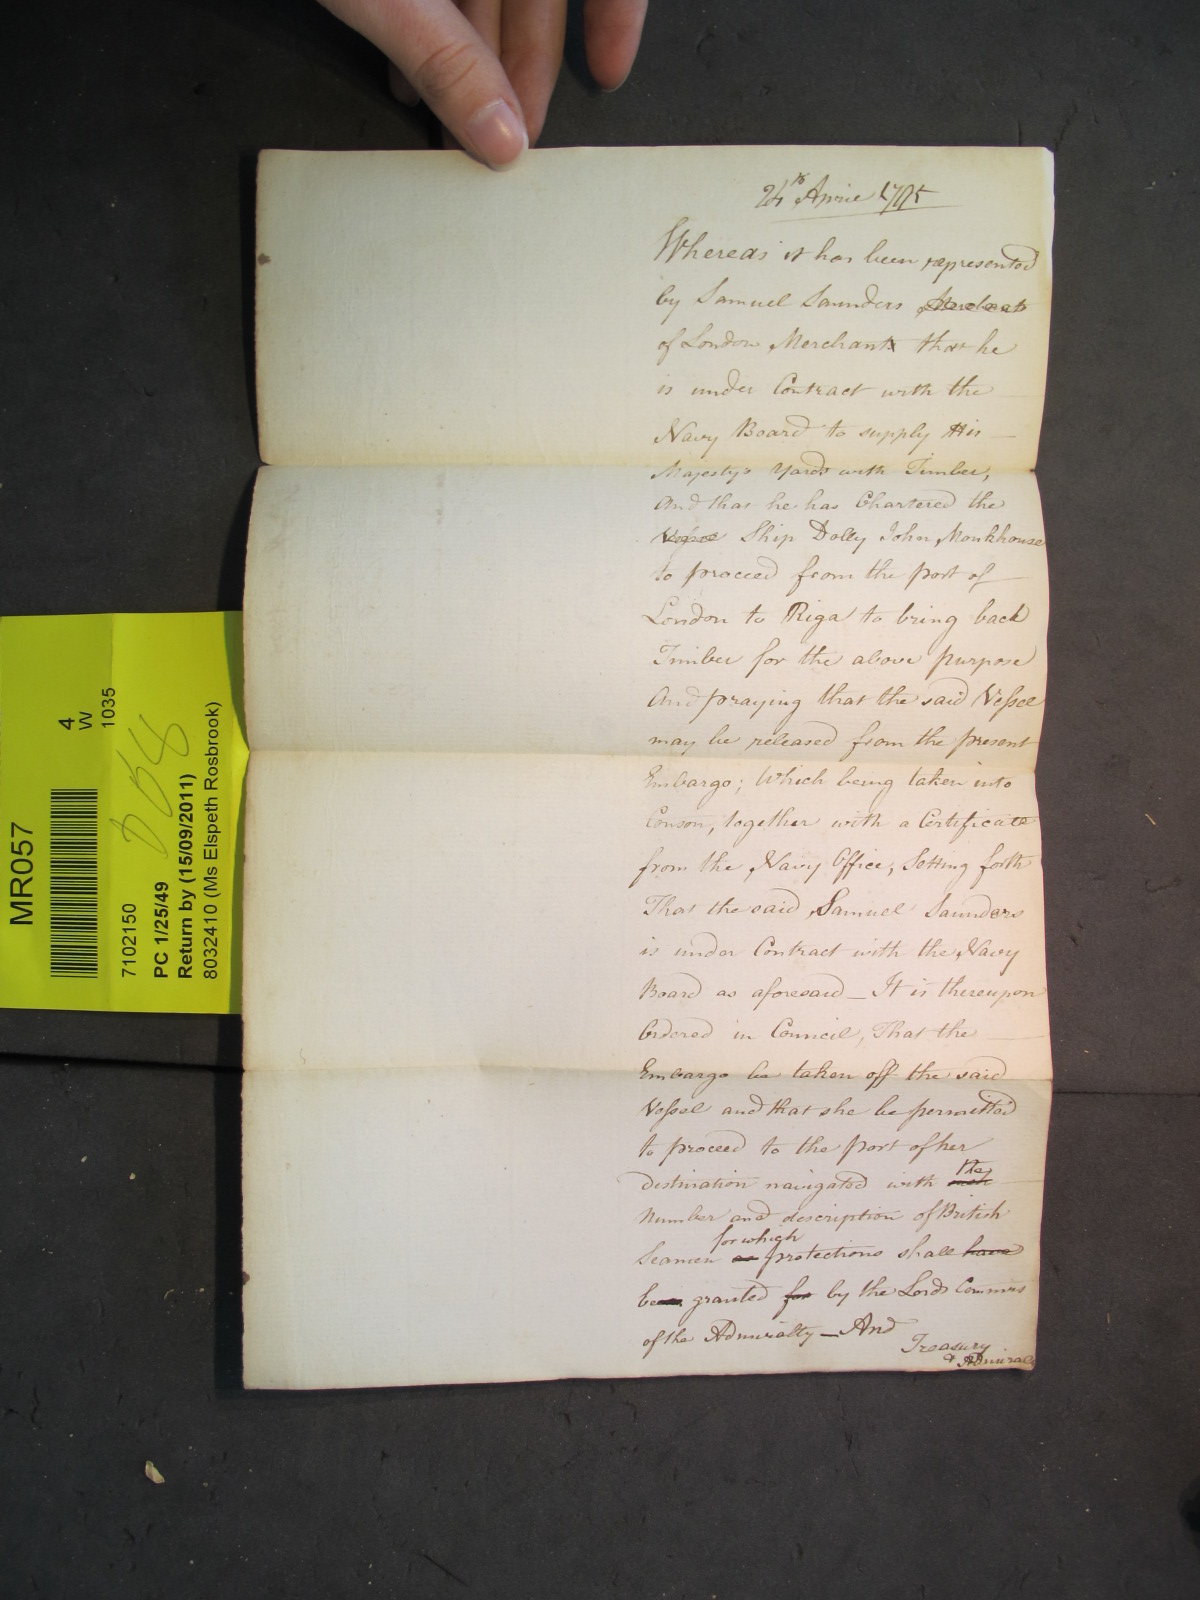 24th April 1795
Whereas it has been represented
by Samuel Saunders Merchants
of London Merchant that he
is under Contract with the
Navy Board to supply His
Majesty's Yards with Timber,
And that he has Chartered the
Vessel Ship Dolly John Monkhouse
to proceed from the port of
London to Riga to bring back
Timber for the above purpose
And praying that the said Vessel
may be released from the present
Embargo; Which being taken into
Conson, together with a Certificate
from the Navy Office, Setting forth
That the said Samuel Saunders
is under Contract with the Navy
Board as aforesaid – It is thereupon
Ordered in Council, That the
Embargo be taken off the said
Vessel and that she be permitted
to proceed to the port of her
the
destination navigated with such
Number and description of British
for which
Seamen as protections shall have
been granted for by the Lords Commrs
of the Admiralty – And
Treasury
& Admiralty
MR057
4
W
1035
7102150
PC 1/25/49
Return by (15/09/2011)
8032410 (Ms Elspeth Rosbrook)